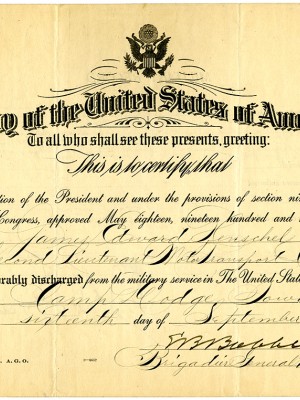 y of the United States of Ame
To all who shall see these presents, greeting:
This is to certify, that
ction of the President and under the provisions of section ni
Congress, approved May eighteen, nineteen hundred and
James Edward
econd Lieutenant Mototransport
rably discharged from the military service in The United State
Camp Dodge, Iow
sixteenth day of September
E B Babb
Brigadier General,
A. G. O.